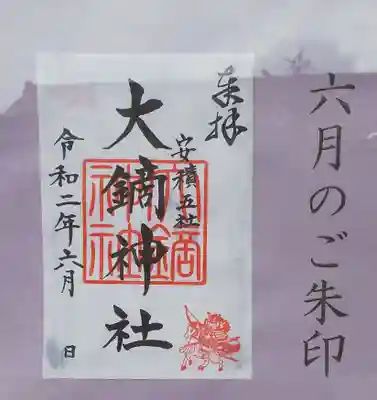 六月のご朱印
奉拝
安積五社
大鏑神社
令和二年六月 日